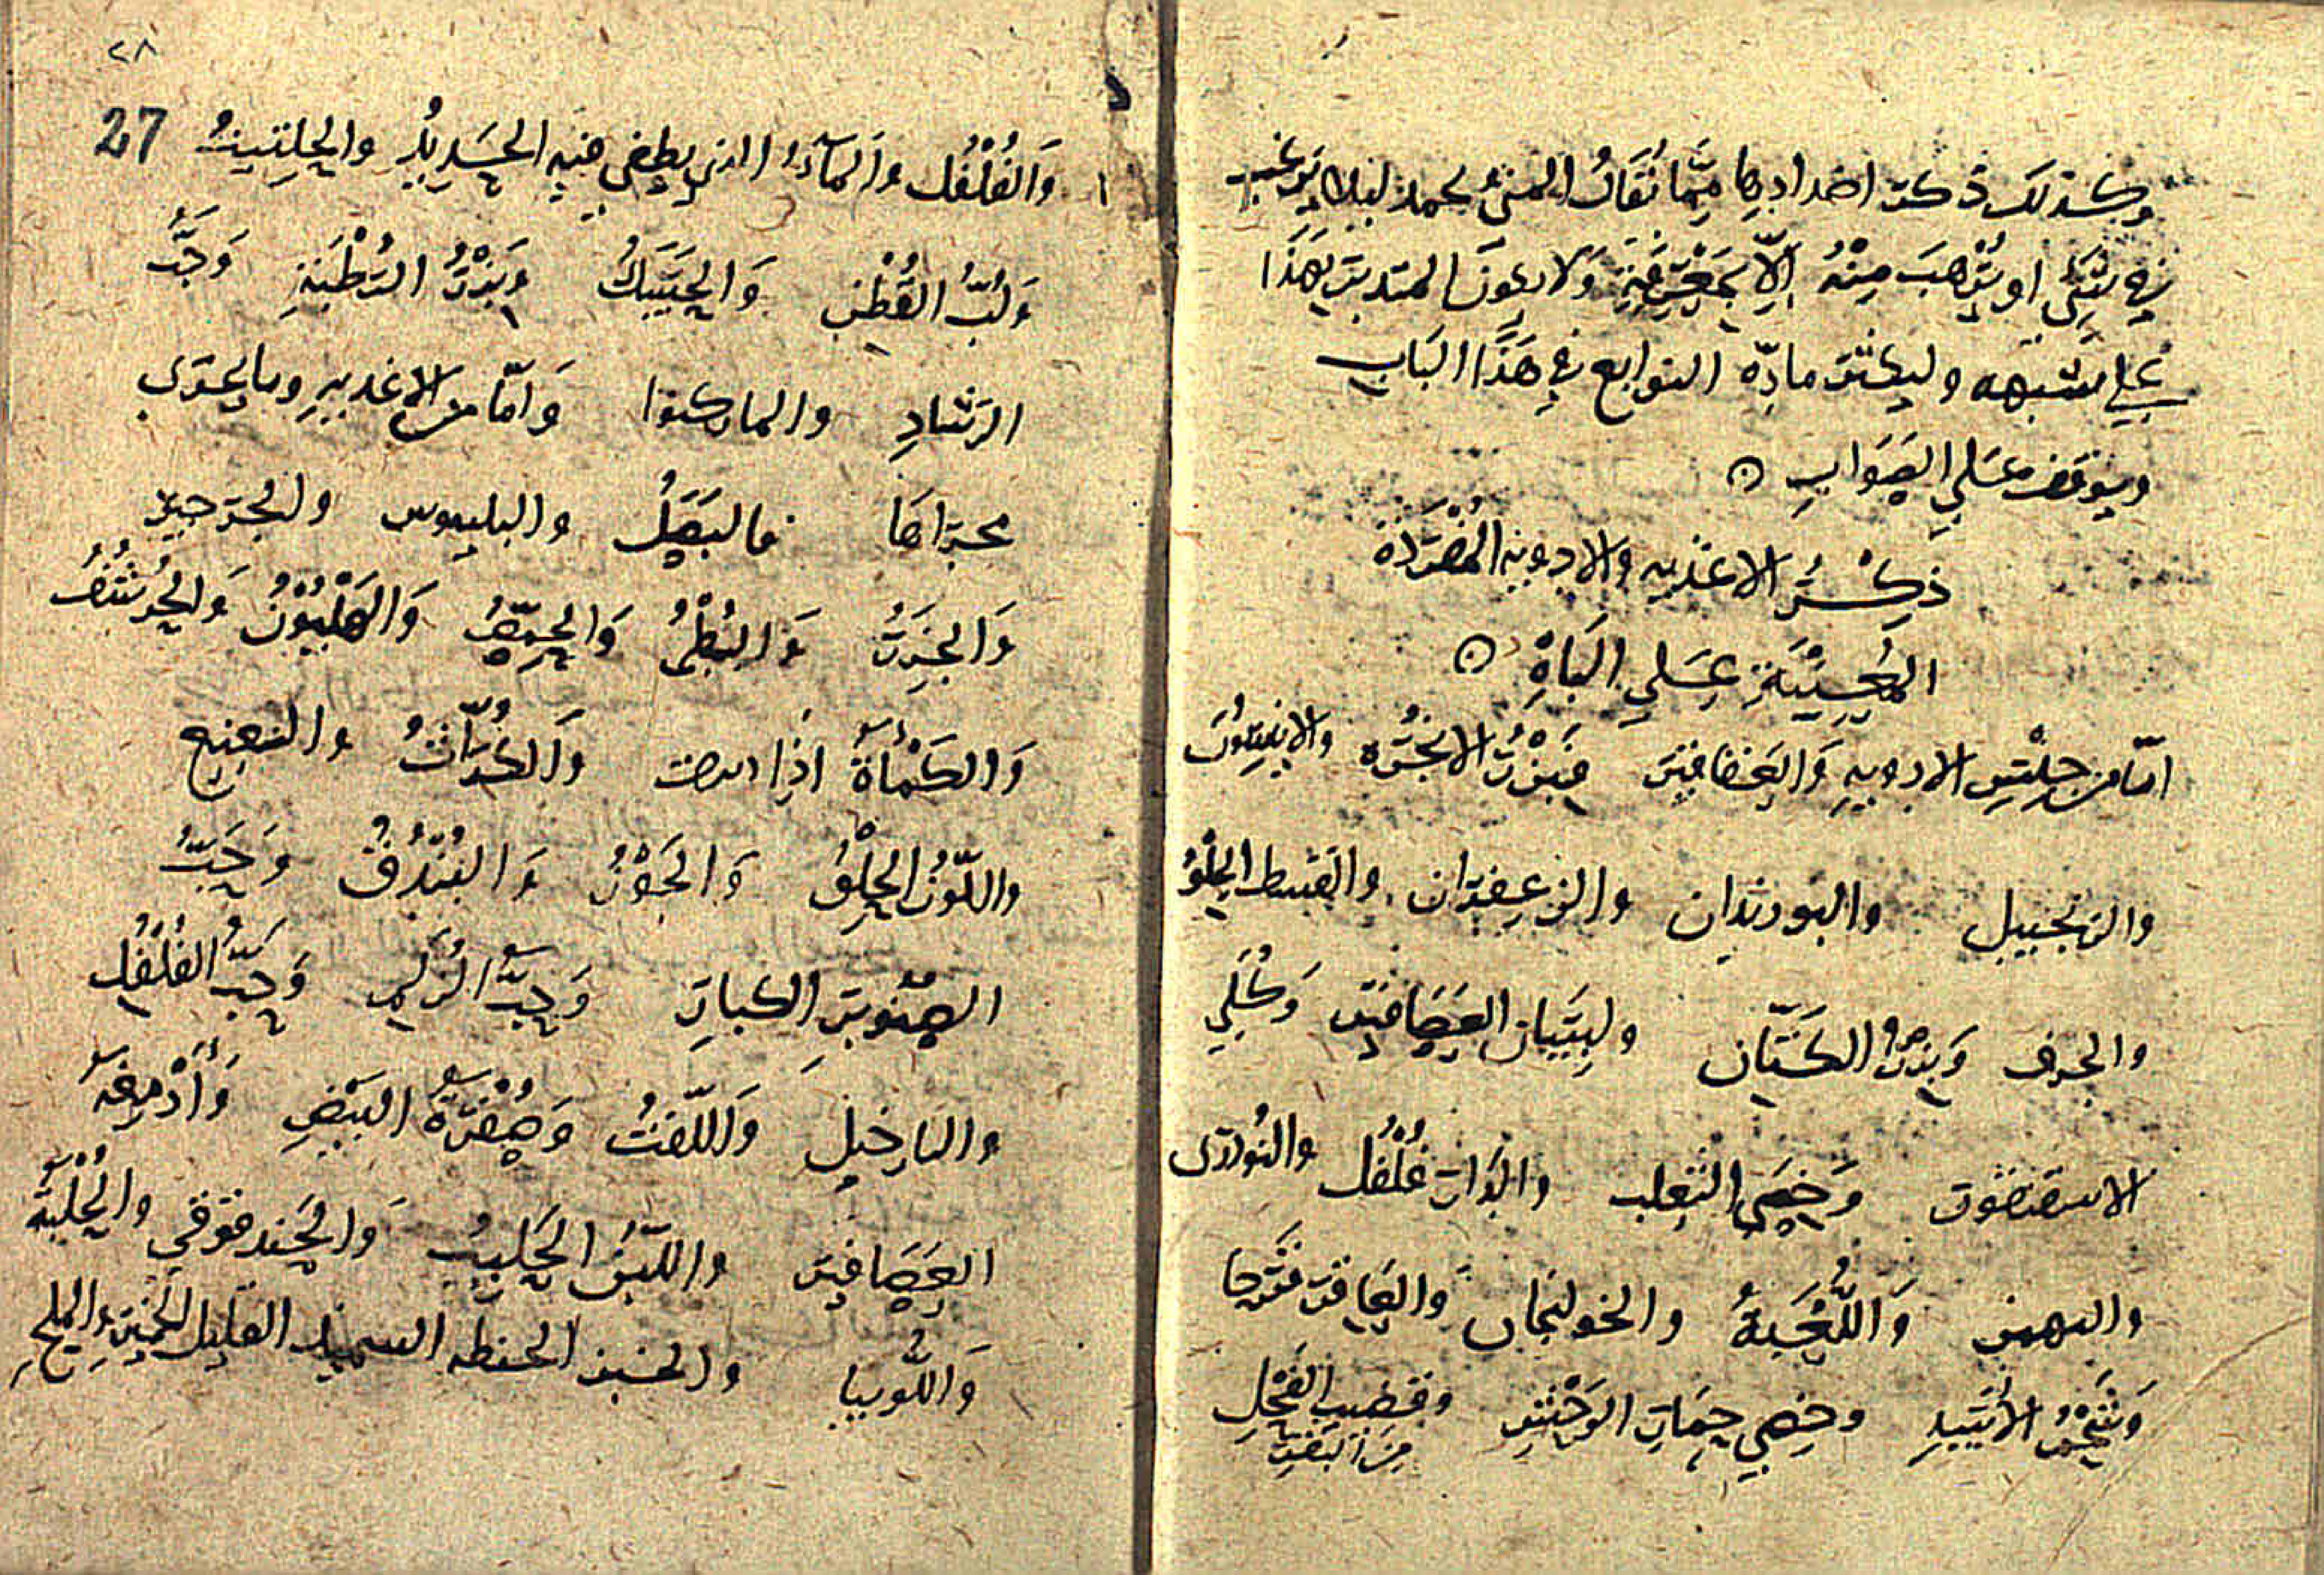 وكذلك ذكرت اضدادها مما نقاد المنى بحملة ليلا يرغب
في شيء او يرهب منه الا بمعرفة ولا يكون المتدبر بهذا
على شبهه وليكثر مادة التوابع في هذا الباب
ويوقف على الصواب ٥
ذِكْرُ الاغذيه والادوية المُفْرَدَة
المُعِيْنَةِ عَلى البَاهِ ٥
امّا من جِنْسِ الادوِيهِ وَالعَقاقير فبَزْرُ الانجُرَه والانيسون
والزنجبيل والبوزندان والزعفران والقسط الحلو
والحرف وَبزرُ الكَتّان ولِسَان العَصَافير وَكُلَى
الاسقنقور وَخصَى الثعلب والدار فُلْفُل والتودرى
والبهمن وَاللُّعْبَةُ والخولنجان والعاقر قرحا
وَشَحْمُ الأَسَدِ وخِصِي حِمَارِ الوَحْشِ وقضيب الفحْلِ
مِنَ البَقَرِ
٢٨
27
وَالفُلْفُل والمآءُ الذي يطفى فيه الحَدِيدُ والحِلتيتُ
وَلُبُّ القُطْنِ وَالحَسَكُ وَبَزْرُ الرَّطْبَةِ وَحَبُّ
الرَشادِ والماركيوا وَامّا من الاغذيهِ وما يجرى
مجراها فالبَصَلُ والبلبوس والجرجير
وَالجَزَرُ وَالبُطْمُ وَالحِمّصُ وَالهَلْيُوْنُ وَالحُرشُفُ
وَالكَمْأةُ اذا وَالكُرّاثُ والنعنع
واللّوزُ الحِلْوُ وَالجَوْزُ وَالبُنْدُقُ وَحَبُّ
الصّنوبَر الكبارِ وَحَبُّ الزلم وَحَبُّ الفُلْفُل
والنارجيل وَاللّفتُ وَصُفْرَةُ البَيْضِ وَأَدْمِغةُ
العَصَافير واللّبَنُ الحَلِيبُ وَالحَندقوقي والحُلْبَةُ
وَاللُّوبيا والخبز الحنطه السميذ القليل الخَميرِ والملحِ